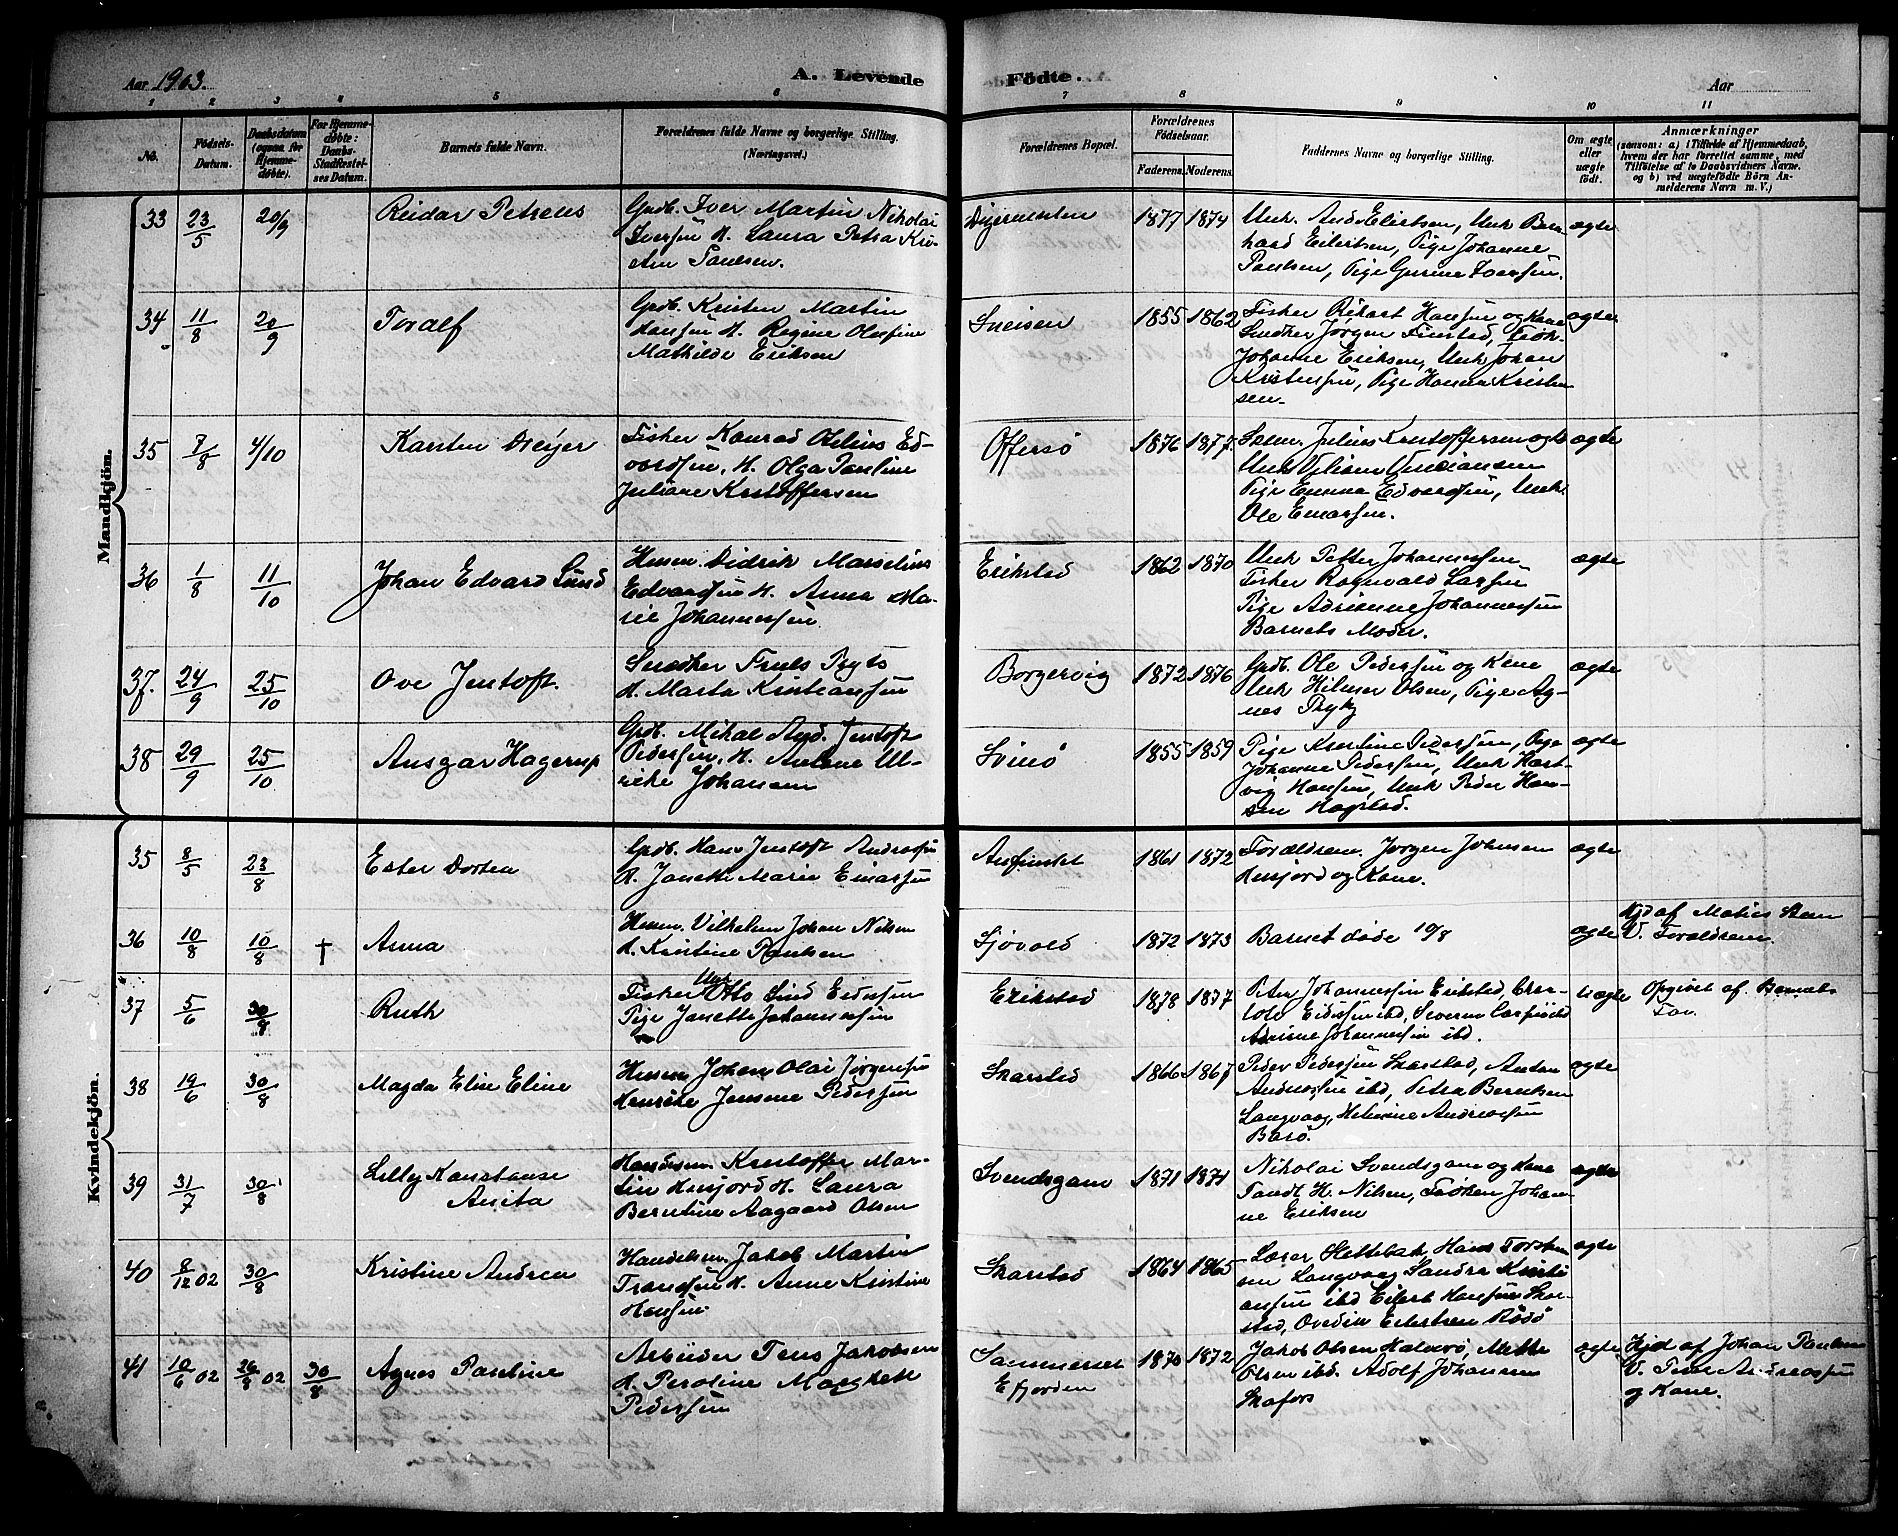 Aar 1903.
A. Levende Födte.
Aar
1 2 3 4 5 6 7 8 9 10 11
No.
Födsels-Datum.
Daabsdatum (ogsaa for Hjemmedöbte).
For Hjemmedöbte: Daabs-Stadfæstelses Datum.
Barnets fulde Navn.
Forældrenes fulde Navne og borgerlige Stilling. (Næringsvei.)
Forældrenes Bopæl.
Forældrenes Fødselsaar.
Faderens. Moderens.
Faddernes Navne og borgerlige Stilling.
Om ægte eller uægte födt.
Anmærkninger
(saasom: a) i Tilfælde af Hjemmedaab, hvem der har forrettet samme, med Tilföielse af to Daabsvidners Navne. og b) ved uægtefödte Börn Anmelderens Navn m. V.)
Mandkjön.
33 23/5 20/9 Reidar Petreus
Grdb. Iver Martin Nikolai
Iversen H. Laura Petra Kri-
sten Paulsen.
1877 1874
Unk. And. Eilertsen, Unk Bern
haard Eilertsen, Pige Johanne
Paulsen, Pige Gurine Iversen.
ægte
34 11/8 20/9 Toralf
Grdb. Kristen Martin
Hansen H. Regine Olufine
Mathilde Eriksen
Sneisen
1855 1862
Fisker Rikart Hansen og Kone
Snedker Jörgen Finstad, Frök-
Johanne Eriksen, Unk Johan
Kristensen, Pige Hanna Kristen
sen.
ægte
35 7/8 4/10 Karsten Meyer
Fisker Konrad Otelius Ed-
vardsen, H. Olga Pauline
Juliane Kristoffersen
Offersö
1876 1877.
Julius Kristoffersen
Unk
Pige Emma Edvardsen, Unk.
Ole Einarsen.
ægte
36 1/8 11/10 Johan Edvard Lund
Husm. Didrik Marselius
Edvardsen H. Anna Ma-
rie Johannessen
Erikstad
1862 1870
Unk Petter Johannessen
Fisker Ragnvald Larsen
Pige Adrianne Johannessen
Barnets Moder.
ægte
37. 24/9 25/10 Ove Jentoft.
Snedker Truls Prytz
H. Marta Kristiansen
Borgervig
1872 1876
Grdb. Ole Pedersen og Kone
Unk Hilmer Olsen, Pige Ag-
nes Prytz
ægte
38 29/9 25/10 Ansgar Hagerup
Grdb. Mikal And. Jentoft
Pedersen, H. Antone Ul-
rikke Johansen
Svinö
1855 1859
Pige Kristine Pedersen, Pige
Johanne Pedersen, Unk Hart-
vig Hansen, Unk Peder Han-
sen Hagstad.
ægte
Kvindekjön.
35 8/5 23/8 Ester Dortea
Grdb. Hans Jentoft Andreasen
H. Janette Marie Einarsen
1861 1872
Forældrene. Jörgen Johnsen
Husjord og Kone.
ægte
36 10/8 10/8 † Anna
Husm. Vilhelm Johan Nilsen
H. Kristine Paulsen
Sjövold
1872 1873
Barnet döde 10/8
ægte
Hjd af Matias Steen
V. Forældrene.
37 5/6 30/8 Ruth
Fisker Unk Otto Lind Eidissen
Pige Janette Johannessen
Erikstad
1878 1877
Peter Johannessen Erikstad, Char-
lote Eidissen ibd, Severin
Adrianne Johannessen ibd.
uægte
Opgivet af Barnets
Far.
38 19/6 30/8 Magda Eline Eline
Husm Johan Olai Jörgensen
Henrike Jensine Pedersen
Skarstad
1866 1867
Peder Pedersen Skarstad, Anton
Andreassen ibd, Petra Berntsen
Langvaag, Helmine Andreassen
Barö.
ægte
39 31/7 30/8 Lilly Konstanse
Anita
Handelsm. Kristoffer Mar-
tin Husjord H. Laura
Berntine Aagaard Olsen
Svendsgam
1871 1871
Nikolai Svendsgam og Kone
Tandt H. Nilsen, Fröken Johan-
ne Eriksen
ægte
40 8/12 02 30/8 Kristine Andrea
Handelsm. Jakob Martin
Transen H. Anne Kristine
Hansen.
Skarstad
1864 1865
Lærer Slettebak, Hans Torsten
sen Langvaag Sandra Kristi
ansen ibd Eilert Hansen Skar-
stad, Ovedia Eilertsen Rödö
ægte
41 10/6 02 26/8 02 30/8 Agnes Pauline
Arbeider Jens Jakobsen
H. Peroline Margrete
Pedersen
Sammerset
Efjorden
1870 1872
Jakob Olsen Halvarö, Mette
Olsen ibd. Adolf Johansen
Skafors
ægte
Hjd af Johan Paulsen
V. Peder Andreassen
og Kone.